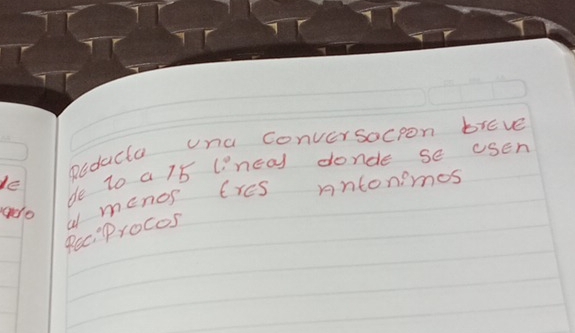 Redacta una conversacion breve
de 10 a 15 lineas donde se usen
al menos tres Antonimos
ReciProcos